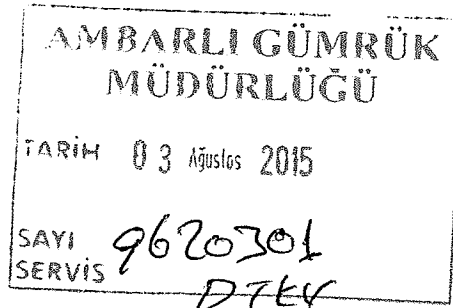 AMBARLI GÜMRÜK
MÜDÜRLÜĞÜ
TARİH 03 Ağustos 2015
SAYI 9620301
SERVİS DTEV